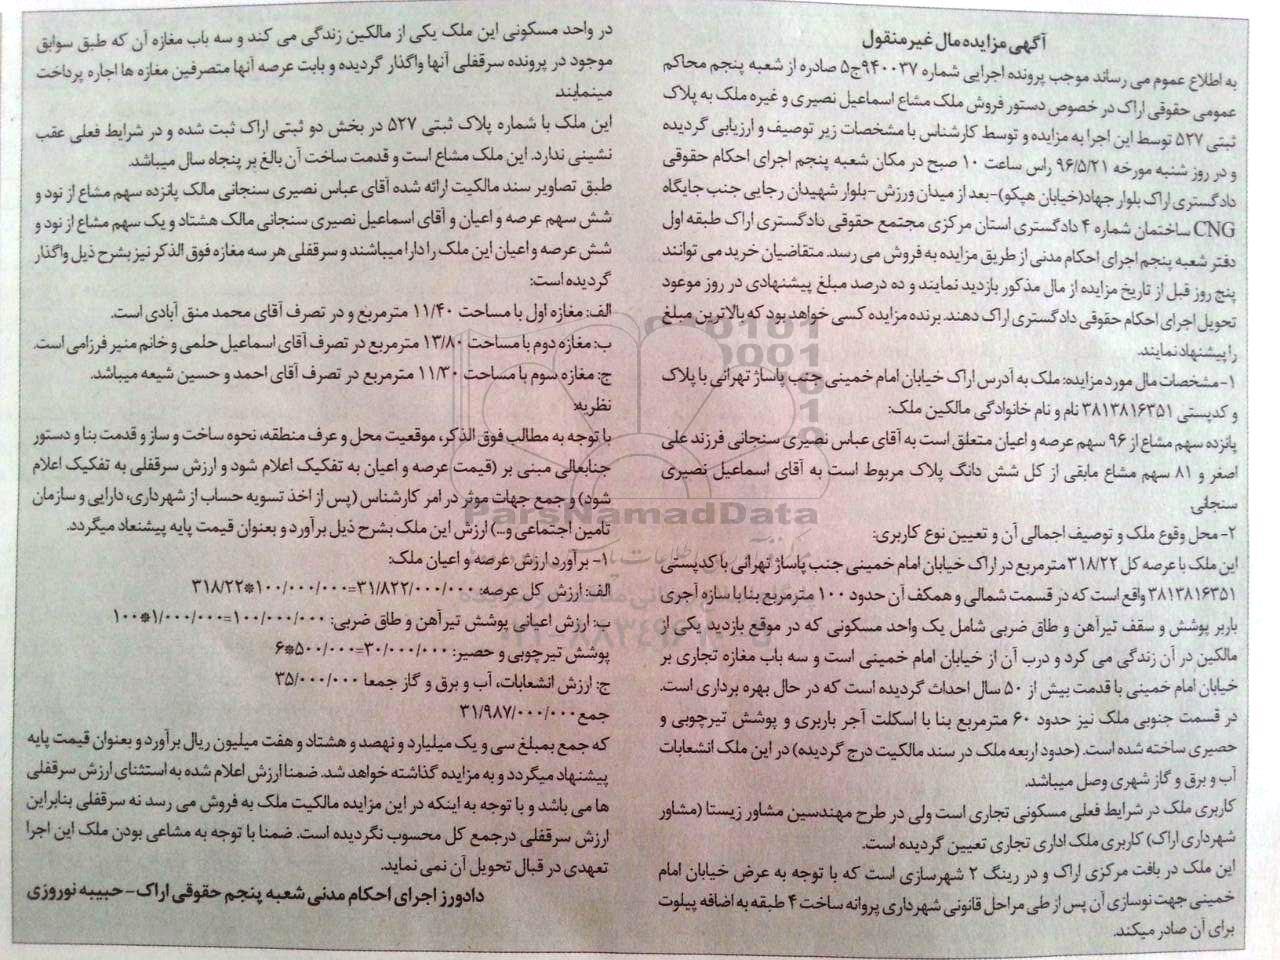 آگهی مزایده مال غیر منقول
به اطلاع عموم می رساند موجب پرونده اجرایی شماره ۹۴۰۰۳۷ج۵ صادره از شعبه پنجم محاکم
عمومی حقوقی اراک در خصوص دستور فروش ملک مشاع اسماعیل نصیری و غیره ملک به پلاک
ثبتی ۵۲۷ توسط این اجرا به مزایده و توسط کارشناس با مشخصات زیر توصیف و ارزیابی گردیده
و در روز شنبه مورخه ۹۶/۵/۲۱ راس ساعت ۱۰ صبح در مکان شعبه پنجم اجرای احکام حقوقی
دادگستری اراک بلوار جهاد(خیابان هپکو)-بعد از میدان ورزش-بلوار شهیدان رجایی جنب جایگاه
CNG ساختمان شماره ۴ دادگستری استان مرکزی مجتمع حقوقی دادگستری اراک طبقه اول
دفتر شعبه پنجم اجرای احکام مدنی از طریق مزایده به فروش می رسد. متقاضیان خرید می توانند
پنج روز قبل از تاریخ مزایده از مال مذکور بازدید نمایند و ده درصد مبلغ پیشنهادی در روز موعود
تحویل اجرای احکام حقوقی دادگستری اراک دهند. برنده مزایده کسی خواهد بود که بالاترین مبلغ
را پیشنهاد نمایند.
۱- مشخصات مال مورد مزایده: ملک به آدرس اراک خیابان امام خمینی جنب پاساژ تهرانی با پلاک
و کدپستی ۳۸۱۳۸۱۶۳۵۱ نام و نام خانوادگی مالکین ملک:
پانزده سهم مشاع از ۹۶ سهم عرصه و اعیان متعلق است به آقای عباس نصیری سنجانی فرزند علی
اصغر و ۸۱ سهم مشاع مابقی از کل شش دانگ پلاک مربوط است به آقای اسماعیل نصیری
سنجانی
۲- محل وقوع ملک و توصیف اجمالی آن و تعیین نوع کاربری:
این ملک با عرصه کل ۳۱۸/۲۲ مترمربع در اراک خیابان امام خمینی جنب پاساژ تهرانی با کدپستی
۳۸۱۳۸۱۶۳۵۱ واقع است که در قسمت شمالی و همکف آن حدود ۱۰۰ مترمربع بنا با سازه آجری
باربر پوشش و سقف تیرآهن و طاق ضربی شامل یک واحد مسکونی که در موقع بازدید یکی از
مالکین در آن زندگی می کرد و درب آن از خیابان امام خمینی است و سه باب مغازه تجاری بر
خیابان امام خمینی با قدمت بیش از ۵۰ سال احداث گردیده است که در حال بهره برداری است.
در قسمت جنوبی ملک نیز حدود ۶۰ مترمربع بنا با اسکلت آجر باربری و پوشش تیرچوبی و
حصیری ساخته شده است. (حدود اربعه ملک در سند مالکیت درج گردیده) در این ملک انشعابات
آب و برق و گاز شهری وصل میباشد.
کاربری ملک در شرایط فعلی مسکونی تجاری است ولی در طرح مهندسین مشاور زیستا (مشاور
شهرداری اراک) کاربری ملک اداری تجاری تعیین گردیده است.
این ملک در بافت مرکزی اراک و در رینگ ۲ شهرسازی است که با توجه به عرض خیابان امام
خمینی جهت نوسازی آن پس از طی مراحل قانونی شهرداری پروانه ساخت ۴ طبقه به اضافه پیلوت
برای آن صادر میکند.
در واحد مسکونی این ملک یکی از مالکین زندگی می کند و سه باب مغازه آن که طبق سوابق
موجود در پرونده سرقفلی آنها واگذار گردیده و بابت عرصه آنها متصرفین مغازه ها اجاره پرداخت
مینمایند.
این ملک با شماره پلاک ثبتی ۵۲۷ در بخش دو ثبتی اراک ثبت شده و در شرایط فعلی عقب
نشینی ندارد. این ملک مشاع است و قدمت ساخت آن بالغ بر پنجاه سال میباشد.
طبق تصاویر سند مالکیت ارائه شده آقای عباس نصیری سنجانی مالک پانزده سهم مشاع از نود و
شش سهم عرصه و اعیان و آقای اسماعیل نصیری سنجانی مالک هشتاد و یک سهم مشاع از نود و
شش عرصه و اعیان این ملک را دارا میباشند و سرقفلی هر سه مغازه فوق الذکر نیز بشرح ذیل واگذار
گردیده است:
الف: مغازه اول با مساحت ۱۱/۴۰ مترمربع و در تصرف آقای محمد منق آبادی است.
ب: مغازه دوم با مساحت ۱۳/۸۰ مترمربع در تصرف آقای اسماعیل حلمی و خانم منیر فرزامی است.
ج: مغازه سوم با مساحت ۱۱/۳۰ مترمربع در تصرف آقای احمد و حسین شیعه میباشد.
نظریه:
با توجه به مطالب فوق الذکر، موقعیت محل و عرف منطقه، نحوه ساخت و ساز و قدمت بنا و دستور
جنابعالی مبنی بر (قیمت عرصه و اعیان به تفکیک اعلام شود و ارزش سرقفلی به تفکیک اعلام
شود) و جمع جهات موثر در امر کارشناس (پس از اخذ تسویه حساب از شهرداری، دارایی و سازمان
تامین اجتماعی و...) ارزش این ملک بشرح ذیل برآورد و بعنوان قیمت پایه پیشنعاد میگردد.
۱- برآورد ارزش عرصه و اعیان ملک:
الف: ارزش کل عرصه: ۳۱/۸۲۲/۰۰۰/۰۰۰=۱۰۰/۰۰۰/۰۰۰*۳۱۸/۲۲
ب: ارزش اعیانی پوشش تیرآهن و طاق ضربی: ۱۰۰/۰۰۰/۰۰۰=۱/۰۰۰/۰۰۰*۱۰۰
پوشش تیرچوبی و حصیر: ۳۰/۰۰۰/۰۰۰=۵۰۰/۰۰۰*۶
ج: ارزش انشعابات، آب و برق و گاز جمعا ۳۵/۰۰۰/۰۰۰
جمع ۳۱/۹۸۷/۰۰۰/۰۰۰
که جمع بمبلغ سی و یک میلیارد و نهصد و هشتاد و هفت میلیون ریال برآورد و بعنوان قیمت پایه
پیشنهاد میگردد و به مزایده گذاشته خواهد شد. ضمنا ارزش اعلام شده به استثنای ارزش سرقفلی
ها می باشد و با توجه به اینکه در این مزایده مالکیت ملک به فروش می رسد نه سرقفلی بنابراین
ارزش سرقفلی در جمع کل محسوب نگردیده است. ضمنا با توجه به مشاعی بودن ملک این اجرا
تعهدی در قبال تحویل آن نمی نماید.
دادورز اجرای احکام مدنی شعبه پنجم حقوقی اراک - حبیبه نوروزی
ParsNamadData